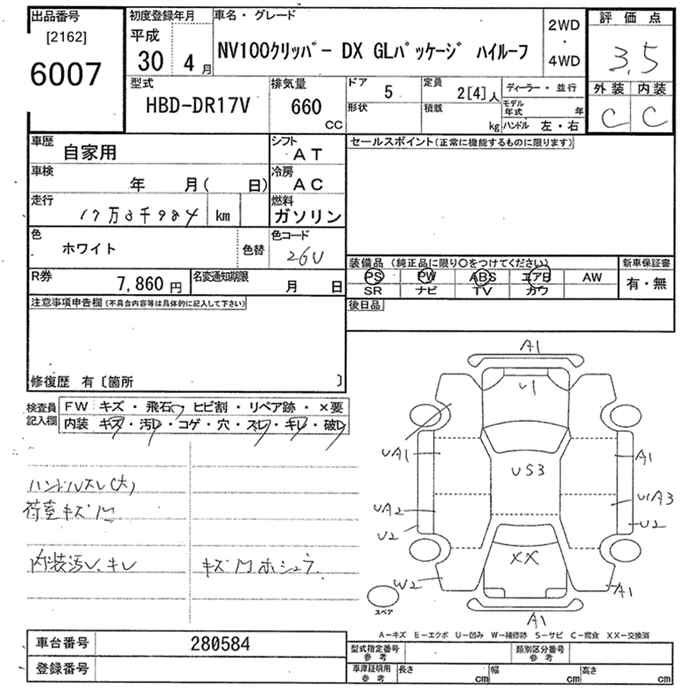 出品番号 初度登録年月 車名・グレード 2WD 評価点
[2162] 平成 ・
6007 30年 4月 NV100クリッパー DX GLパッケージ ハイルーフ 4WD 3.5
型式 排気量 ドア 5 定員 2[4]人 ディーラー・並行 外装 内装
HBD-DR17V 660 CC 形状 積載 kg モデル年式 年 C C
ハンドル 左・右
車歴 自家用 シフト AT セールスポイント(正常に機能するものに限ります)
車検 年 月( 日) 冷房 AC
走行 17万3千984 km 燃料 ガソリン
色 ホワイト 色替 色コード 26U
装備品(純正品に限り○をつけてください) 新車保証書
R券 7,860円 名変通知期限 月 日 PS PW ABS エアB AW 有・無
SR ナビ TV カワ
注意事項申告欄(不具合内容等は具体的に記入して下さい) 後日品
修復歴 有〔箇所 〕
検査員 FW キズ・飛石・ヒビ割・リペア跡・×要
記入欄 内装 キズ・汚レ・コゲ・穴・スレ・キレ・破レ
ハンドルスレ(大)
荷室キズM
内装汚レ、キレ キズMホシュウ
A1
U1
UA1 A1
US3
UA2 U1A3
U2 U2
XX
W2 A1
スペア
A1
A-キズ E-エクボ U-凹み W-補修跡 S-サビ C-腐食 XX-交換済
車台番号 280584 型式指定番号 参考 類別区分番号 参考
登録番号 車庫証明用 参考 長さ cm 幅 cm 高さ cm